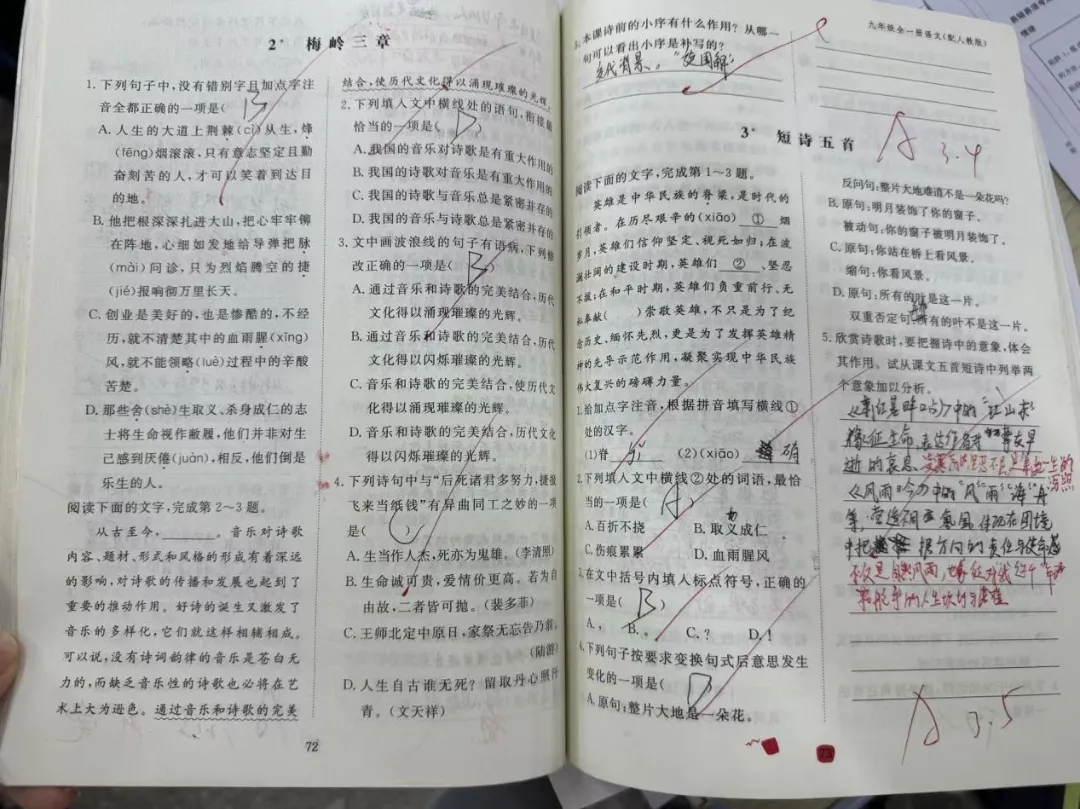 2* 梅岭三章
1. 下列句子中，没有错别字且加点字注
音全都正确的一项是( B )
A. 人生的大道上荆棘(cì)从生，烽
(fēng)烟滚滚，只有意志坚定且勤
奋刻苦的人，才可以笑着到达目
的地。
B. 他把根深深扎进大山，把心牢牢铆
在阵地，心细如发地给导弹把脉
(mài)问诊，只为烈焰腾空的捷
(jié)报响彻万里长天。
C. 创业是美好的，也是惨酷的，不经
历，就不清楚其中的血雨腥(xīng)
风，就不能领略(luè)过程中的辛酸
苦楚。
D. 那些舍(shè)生取义、杀身成仁的志
士将生命视作敝履，他们并非对生
己感到厌倦(juàn)，相反，他们倒是
乐生的人。
阅读下面的文字，完成第2～3题。
从古至今，________。音乐对诗歌
内容、题材、形式和风格的形成有着深远
的影响，对诗歌的传播和发展也起到了
重要的推动作用。好诗的诞生又激发了
音乐的多样化，它们就这样相辅相成。
可以说，没有诗词韵律的音乐是苍白无
力的，而缺乏音乐性的诗歌也必将在艺
术上大为逊色。通过音乐和诗歌的完美
结合，使历代文化得以涌现璀璨的光辉。
2. 下列填入文中横线处的语句，衔接最
恰当的一项是( D )
A. 我国的音乐对诗歌是有重大作用的
B. 我国的诗歌对音乐是有重大作用的
C. 我国的诗歌与音乐总是紧密并存的
D. 我国的音乐与诗歌总是紧密并存的
3. 文中画波浪线的句子有语病，下列修
改正确的一项是( B )
A. 通过音乐和诗歌的完美结合，历代
文化得以涌现璀璨的光辉。
B. 通过音乐和诗歌的完美结合，历代
文化得以闪烁璀璨的光辉。
C. 音乐和诗歌的完美结合，使历代文
化得以涌现璀璨的光辉。
D. 音乐和诗歌的完美结合，历代文化
得以闪烁璀璨的光辉。
4. 下列诗句中与“后死诸君多努力，捷报
飞来当纸钱”有异曲同工之妙的一项
是( C )
A. 生当作人杰，死亦为鬼雄。(李清照)
B. 生命诚可贵，爱情价更高。若为自
由故，二者皆可抛。(裴多菲)
C. 王师北定中原日，家祭无忘告乃翁。
(陆游)
D. 人生自古谁无死？留取丹心照汗
青。(文天祥)
72
5. 本课诗前的小序有什么作用？从哪一
句可以看出小序是补写的？
交代背景。“旋围解”
3* 短诗五首
阅读下面的文字，完成第1～3题。
英雄是中华民族的脊梁，是时代的
引领者。在历尽艰辛的(xiāo) ① 烟
岁月，英雄们信仰坚定、视死如归；在波
澜壮阔的建设时期，英雄们 ② 、坚忍
不拔；在和平时期，英雄们负重前行、无
私奉献( )崇敬英雄，不只是为了纪
念历史、缅怀先烈，更是为了发挥英雄精
神的先导示范作用，凝聚实现中华民族
伟大复兴的磅礴力量。
1. 给加点字注音，根据拼音填写横线①
处的汉字。
(1)脊 jǐ (2)(xiāo) 硝
2. 下列填入文中横线②处的词语，最恰
当的一项是( A )
A. 百折不挠 B. 取义成仁
C. 伤痕累累 D. 血雨腥风
3. 在文中括号内填入标点符号，正确的
一项是( B )
A. ， B. 。 C. ？ D. ！
4. 下列句子按要求变换句式后意思发生
变化的一项是( D )
A. 原句：整片大地是一朵花。
九年级全一册语文(配人教版)
A 3.4
反问句：整片大地难道不是一朵花吗？
B. 原句：明月装饰了你的窗子。
被动句：你的窗子被明月装饰了。
C. 原句：你站在桥上看风景。
缩句：你看风景。
D. 原句：所有的叶是这一片。
双重否定句：所有的叶不是这一片。
5. 欣赏诗歌时，要把握诗中的意象，体会
其作用。试从课文五首短诗中列举两
个意象加以分析。
象征生命，表达作者对
逝的哀思
《风雨吟》中的“风”“雨”“海”“舟”
等，营造
不仅是自然风雨，也象征
A 3.5
73